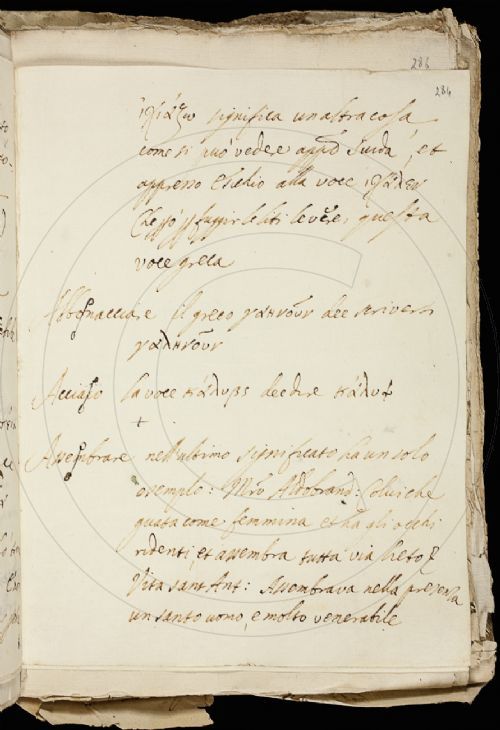 286
284
significa un altra cosa
come si può vedere appo Suida, et
appresso Esichio alla voce
questa
voce greca
Abbonacciare il greco γαηνοῦν dee scriversi
γαληνοῦν
Acciaio la voce πάλυβς dee dire πάλυψ
+
Assembrare nell'ultimo significato ha un solo
esemplo: Mro Aldobrand: Colui che
guata come femmina et ha gli occhi
ridenti, et assembra tutta via lieto
Vita sant Ant: Assembrava nella presenza
un santo uomo, e molto venerabile